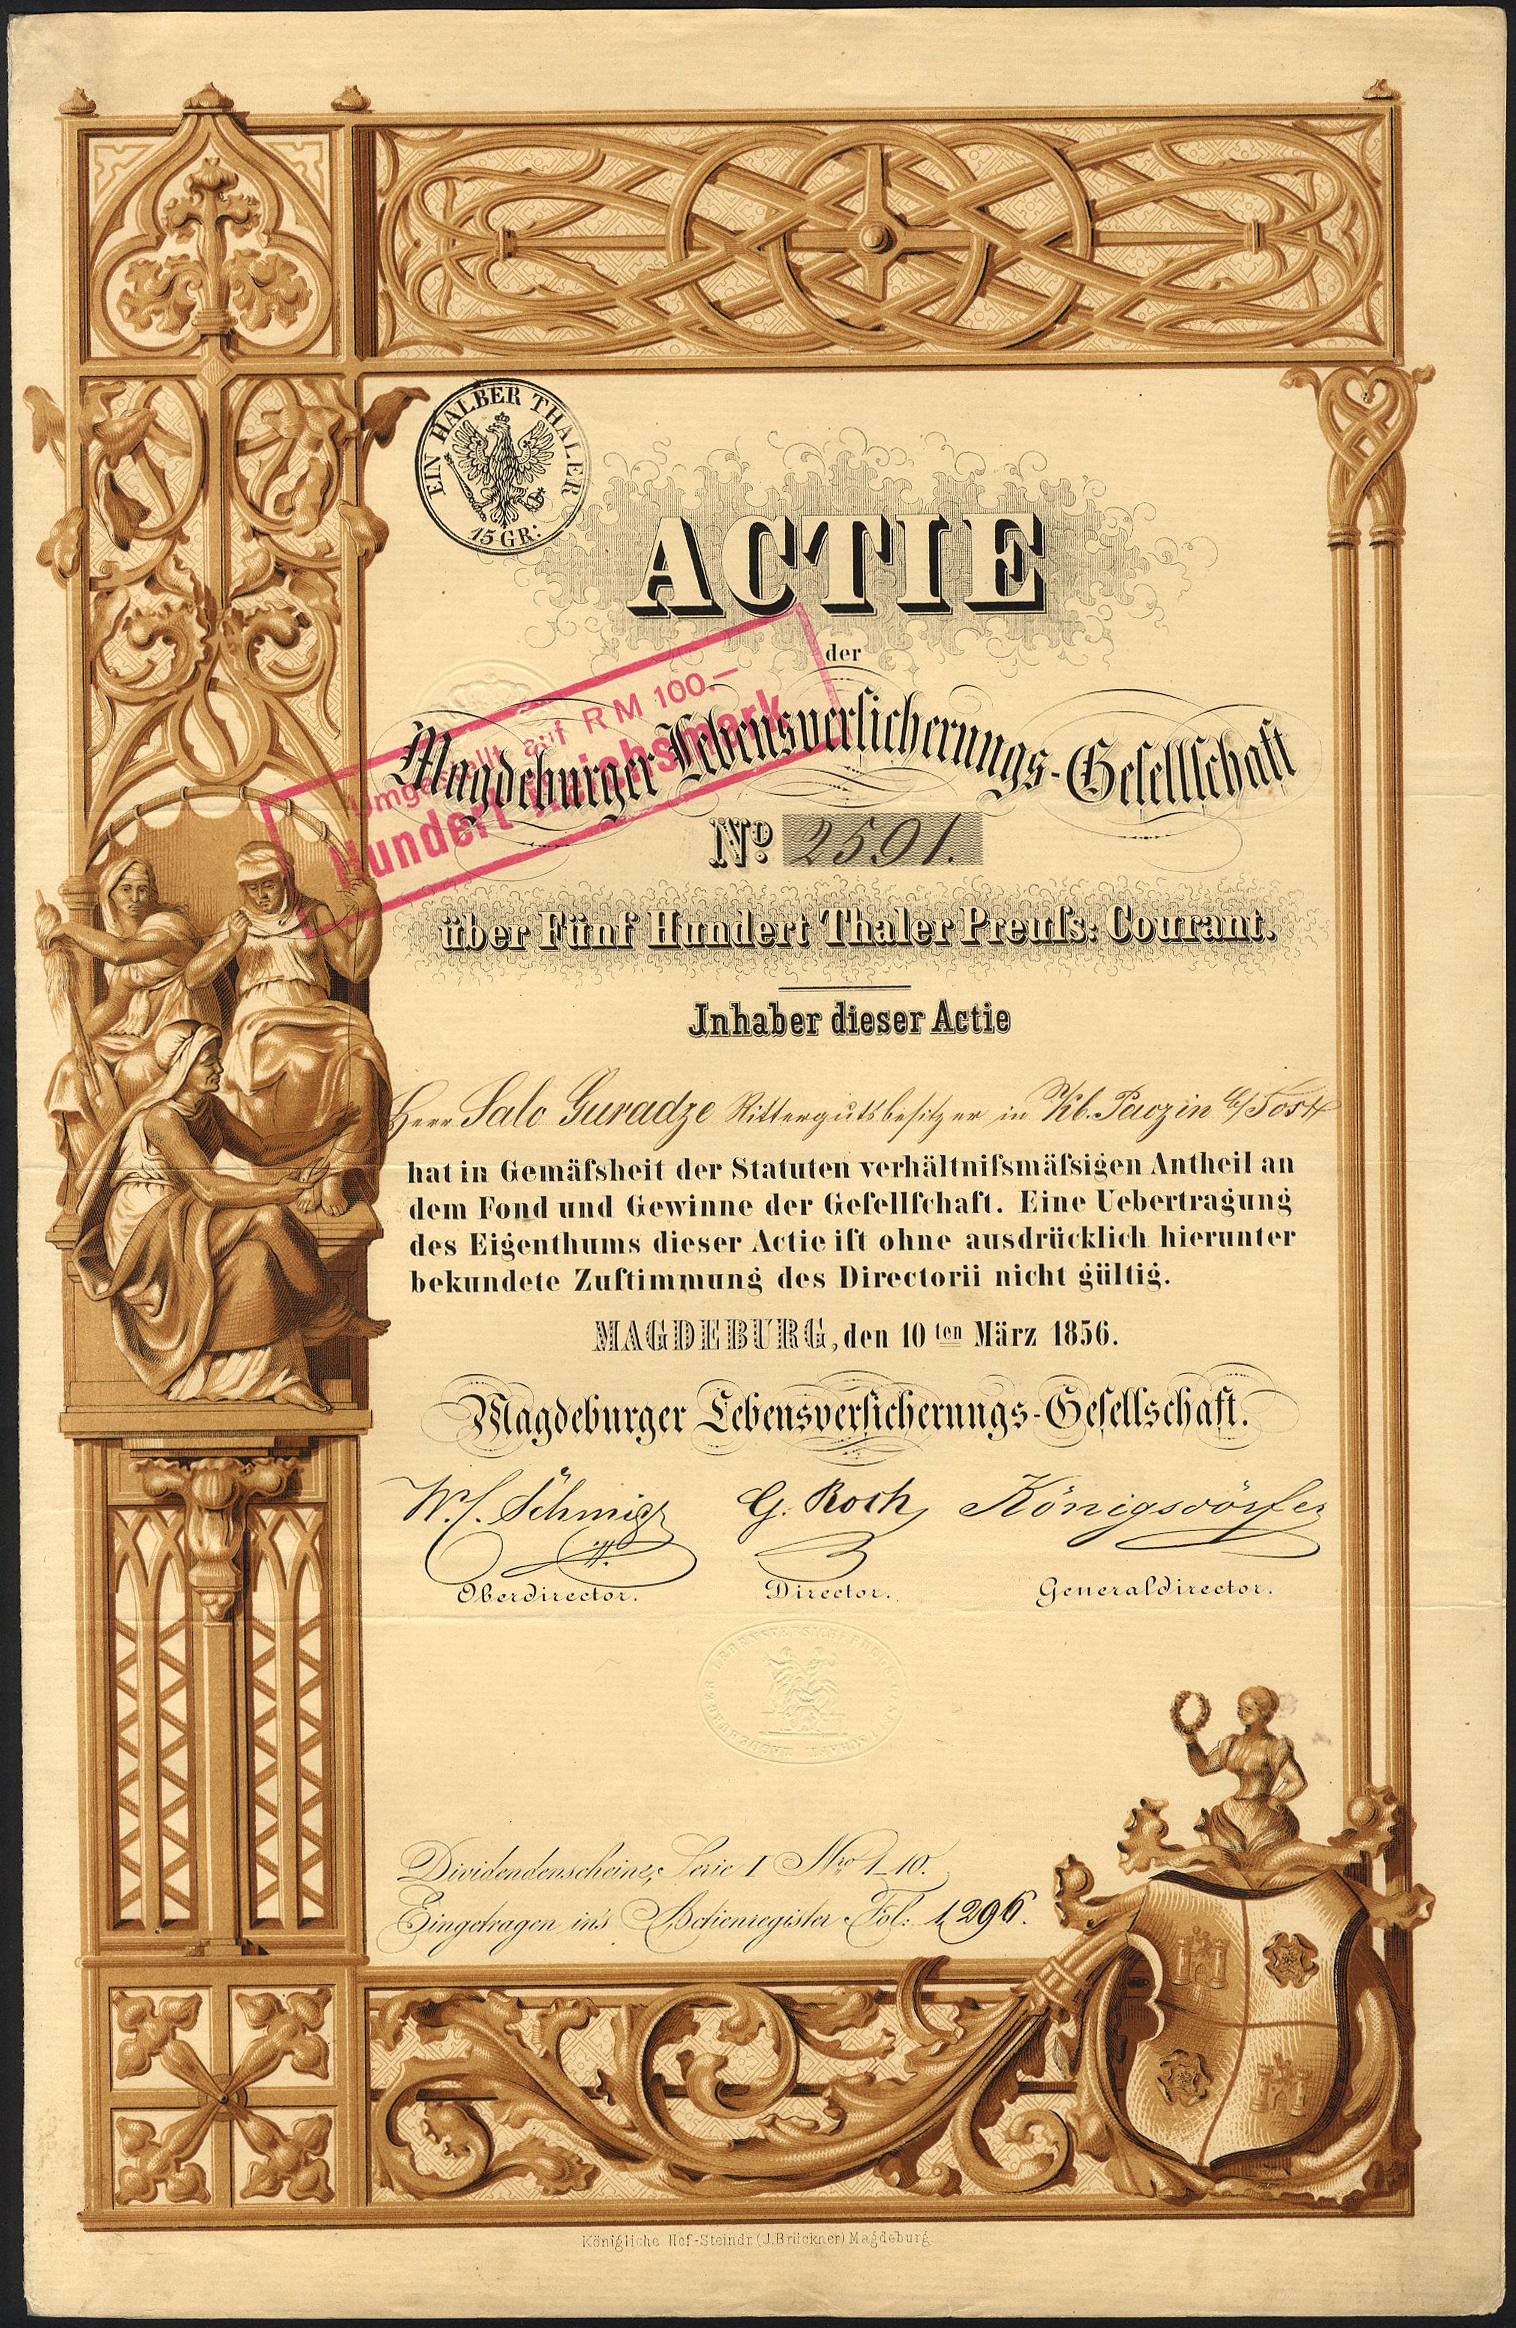 EIN HALBER THALER
15 GR:
ACTIE
der
Magdeburger Lebensversicherungs-Gesellschaft
Umgestellt auf RM 100.—
Hundert Reichsmark
No. 2591.
über Fünf Hundert Thaler Preuſs: Courant.
Jnhaber dieser Actie
Herr Salo Guradze Rittergutsbesitzer in Kb. Paczin b/Tost
hat in Gemäſsheit der Statuten verhältniſsmäſsigen Antheil an
dem Fond und Gewinne der Geſellſchaft. Eine Uebertragung
des Eigenthums dieser Actie iſt ohne ausdrücklich hierunter
bekundete Zuſtimmung des Directorii nicht gültig.
MAGDEBURG, den 10ten März 1856.
Magdeburger Lebensverſicherungs-Geſellſchaft.
G. Koch, Königsdörfer
Oberdirector. Director. Generaldirector.
MAGDEBURGER LEBENSVERSICHERUNGS GESELLSCHAFT
Dividendenscheine, Serie I Nro 1_10.
Eingetragen in's Actienregister Fol: 1,296.
Königliche Hof-Steindr. (J. Brückner) Magdeburg.